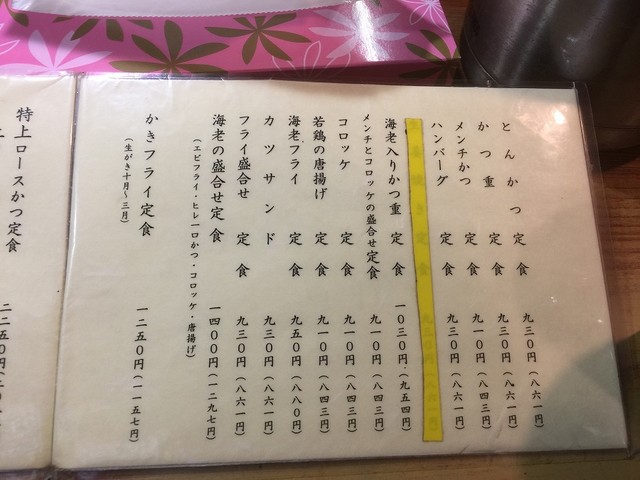 とんかつ定食 九三〇円(八六一円)
かつ重 定食 九三〇円(八六一円)
メンチかつ 定食 九一〇円(八四三円)
ハンバーグ 定食 九三〇円(八六一円)
焼き定食
海老入りかつ重 定食 一〇三〇円(九五四円)
メンチとコロッケの盛合せ定食 九一〇円(八四三円)
コロッケ 定食 九一〇円(八四三円)
若鶏の唐揚げ 定食 九一〇円(八四三円)
海老フライ 定食 九五〇円(八八〇円)
カツサンド 九三〇円(八六一円)
フライ盛合せ 定食 九三〇円(八六一円)
海老の盛合せ定食 一四〇〇円(一二九七円)
(エビフライ・ヒレ一口かつ・コロッケ・唐揚げ)
かきフライ定食 一二五〇円(一一五七円)
(生がき十月〜三月)
特上ロースかつ定食 二二五〇円(二〇